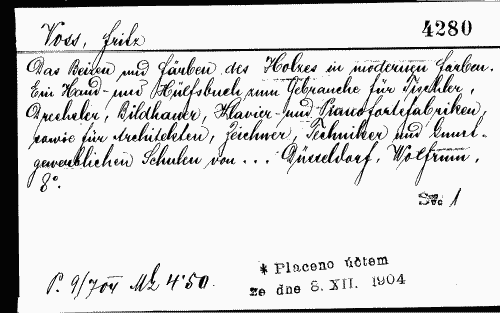 Voss, Fritz
4280
Das Beizen und Färben des Holzes in modernen Farben.
Ein Hand- und Hülfsbuch zum Gebrauche für Tischler,
Drechsler, Bildhauer, Klavier- und Pianofortefabriken,
sowie für Architekten, Zeichner, Techniker und kunst-
gewerblichen Schulen von ... Düsseldorf, Wolfrum,
8°.
Sv. 1
P. 9/7 04 Mk 4·50.
* Placeno účtem
ze dne 8. XII. 1904